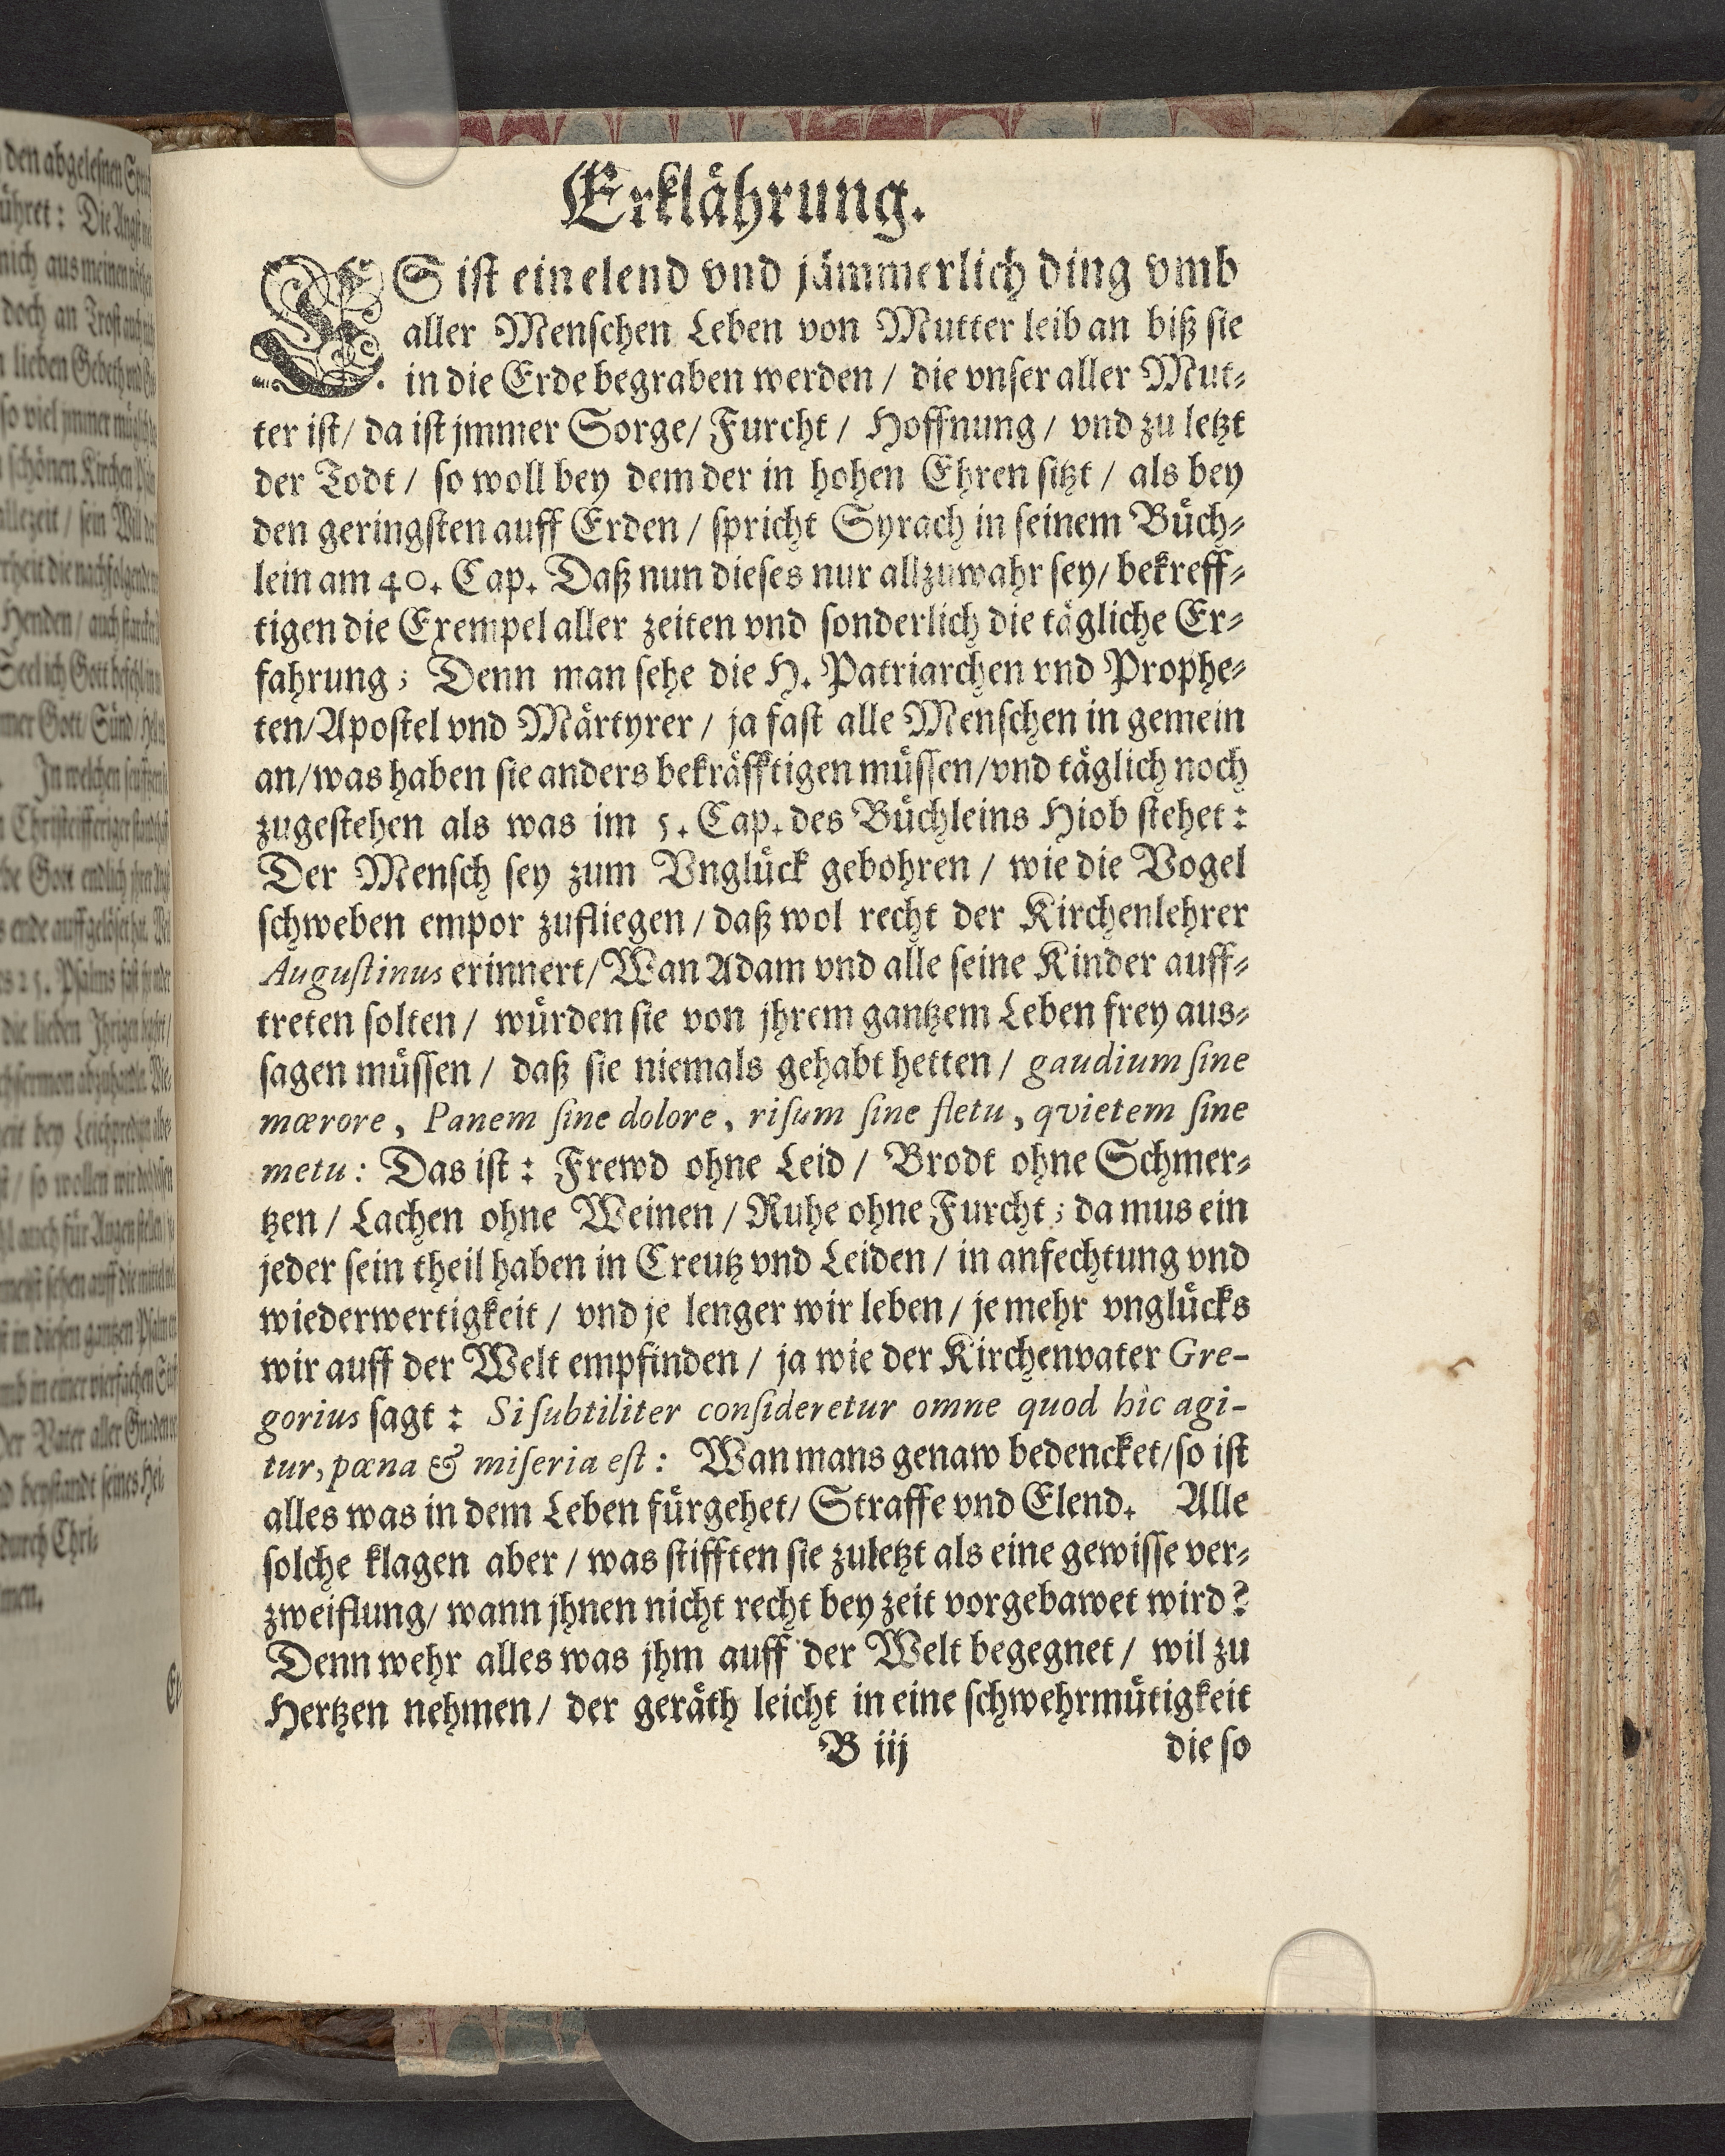 Erklåhrung.
ES ist ein elend vnd jåmmerlich ding vmb
aller Menschen Leben von Mutter leib an biß sie
in die Erde begraben werden / die vnser aller Mut-
ter ist / da ist jmmer Sorge / Furcht / Hoffnung / vnd zu letzt
der Todt / so woll bey dem der in hohen Ehren sitzt / als bey
den geringsten auff Erden / spricht Syrach in seinem Bůch-
lein am 40. Cap. Daß nun dieses nur allzuwahr sey / bekreff-
tigen die Exempel aller zeiten vnd sonderlich die tågliche Er-
fahrung; Denn man sehe die H. Patriarchen vnd Prophe-
ten / Apostel vnd Mårtyrer / ja fast alle Menschen in gemein
an / was haben sie anders bekråfftigen můssen / vnd tåglich noch
zugestehen als was im 5. Cap. des Bůchleins Hiob stehet:
Der Mensch sey zum Vnglůck gebohren / wie die Vogel
schweben empor zufliegen / daß wol recht der Kirchenlehrer
Augustinus erinnert / Wan Adam vnd alle seine Kinder auff-
treten solten / wůrden sie von jhrem gantzem Leben frey aus-
sagen můssen / daß sie niemals gehabt hetten / gaudium sine
mœrore, Panem sine dolore, risum sine fletu, qvietem sine
metu: Das ist: Frewd ohne Leid / Brodt ohne Schmer-
tzen / Lachen ohne Weinen / Ruhe ohne Furcht; da mus ein
jeder sein theil haben in Creutz vnd Leiden / in anfechtung vnd
wiederwertigkeit / vnd je lenger wir leben / je mehr vnglůcks
wir auff der Welt empfinden / ja wie der Kirchenvater Gre-
gorius sagt: Si subtiliter consideretur omne quod hîc agi-
tur, pœna & miseria est: Wan mans genaw bedencket / so ist
alles was in dem Leben fůrgehet / Straffe vnd Elend. Alle
solche klagen aber / was stifften sie zuletzt als eine gewisse ver-
zweiflung / wann jhnen nicht recht bey zeit vorgebawet wird?
Denn wehr alles was jhm auff der Welt begegnet / wil zu
Hertzen nehmen / der geråth leicht in eine schwehrmůtigkeit
B iij die so